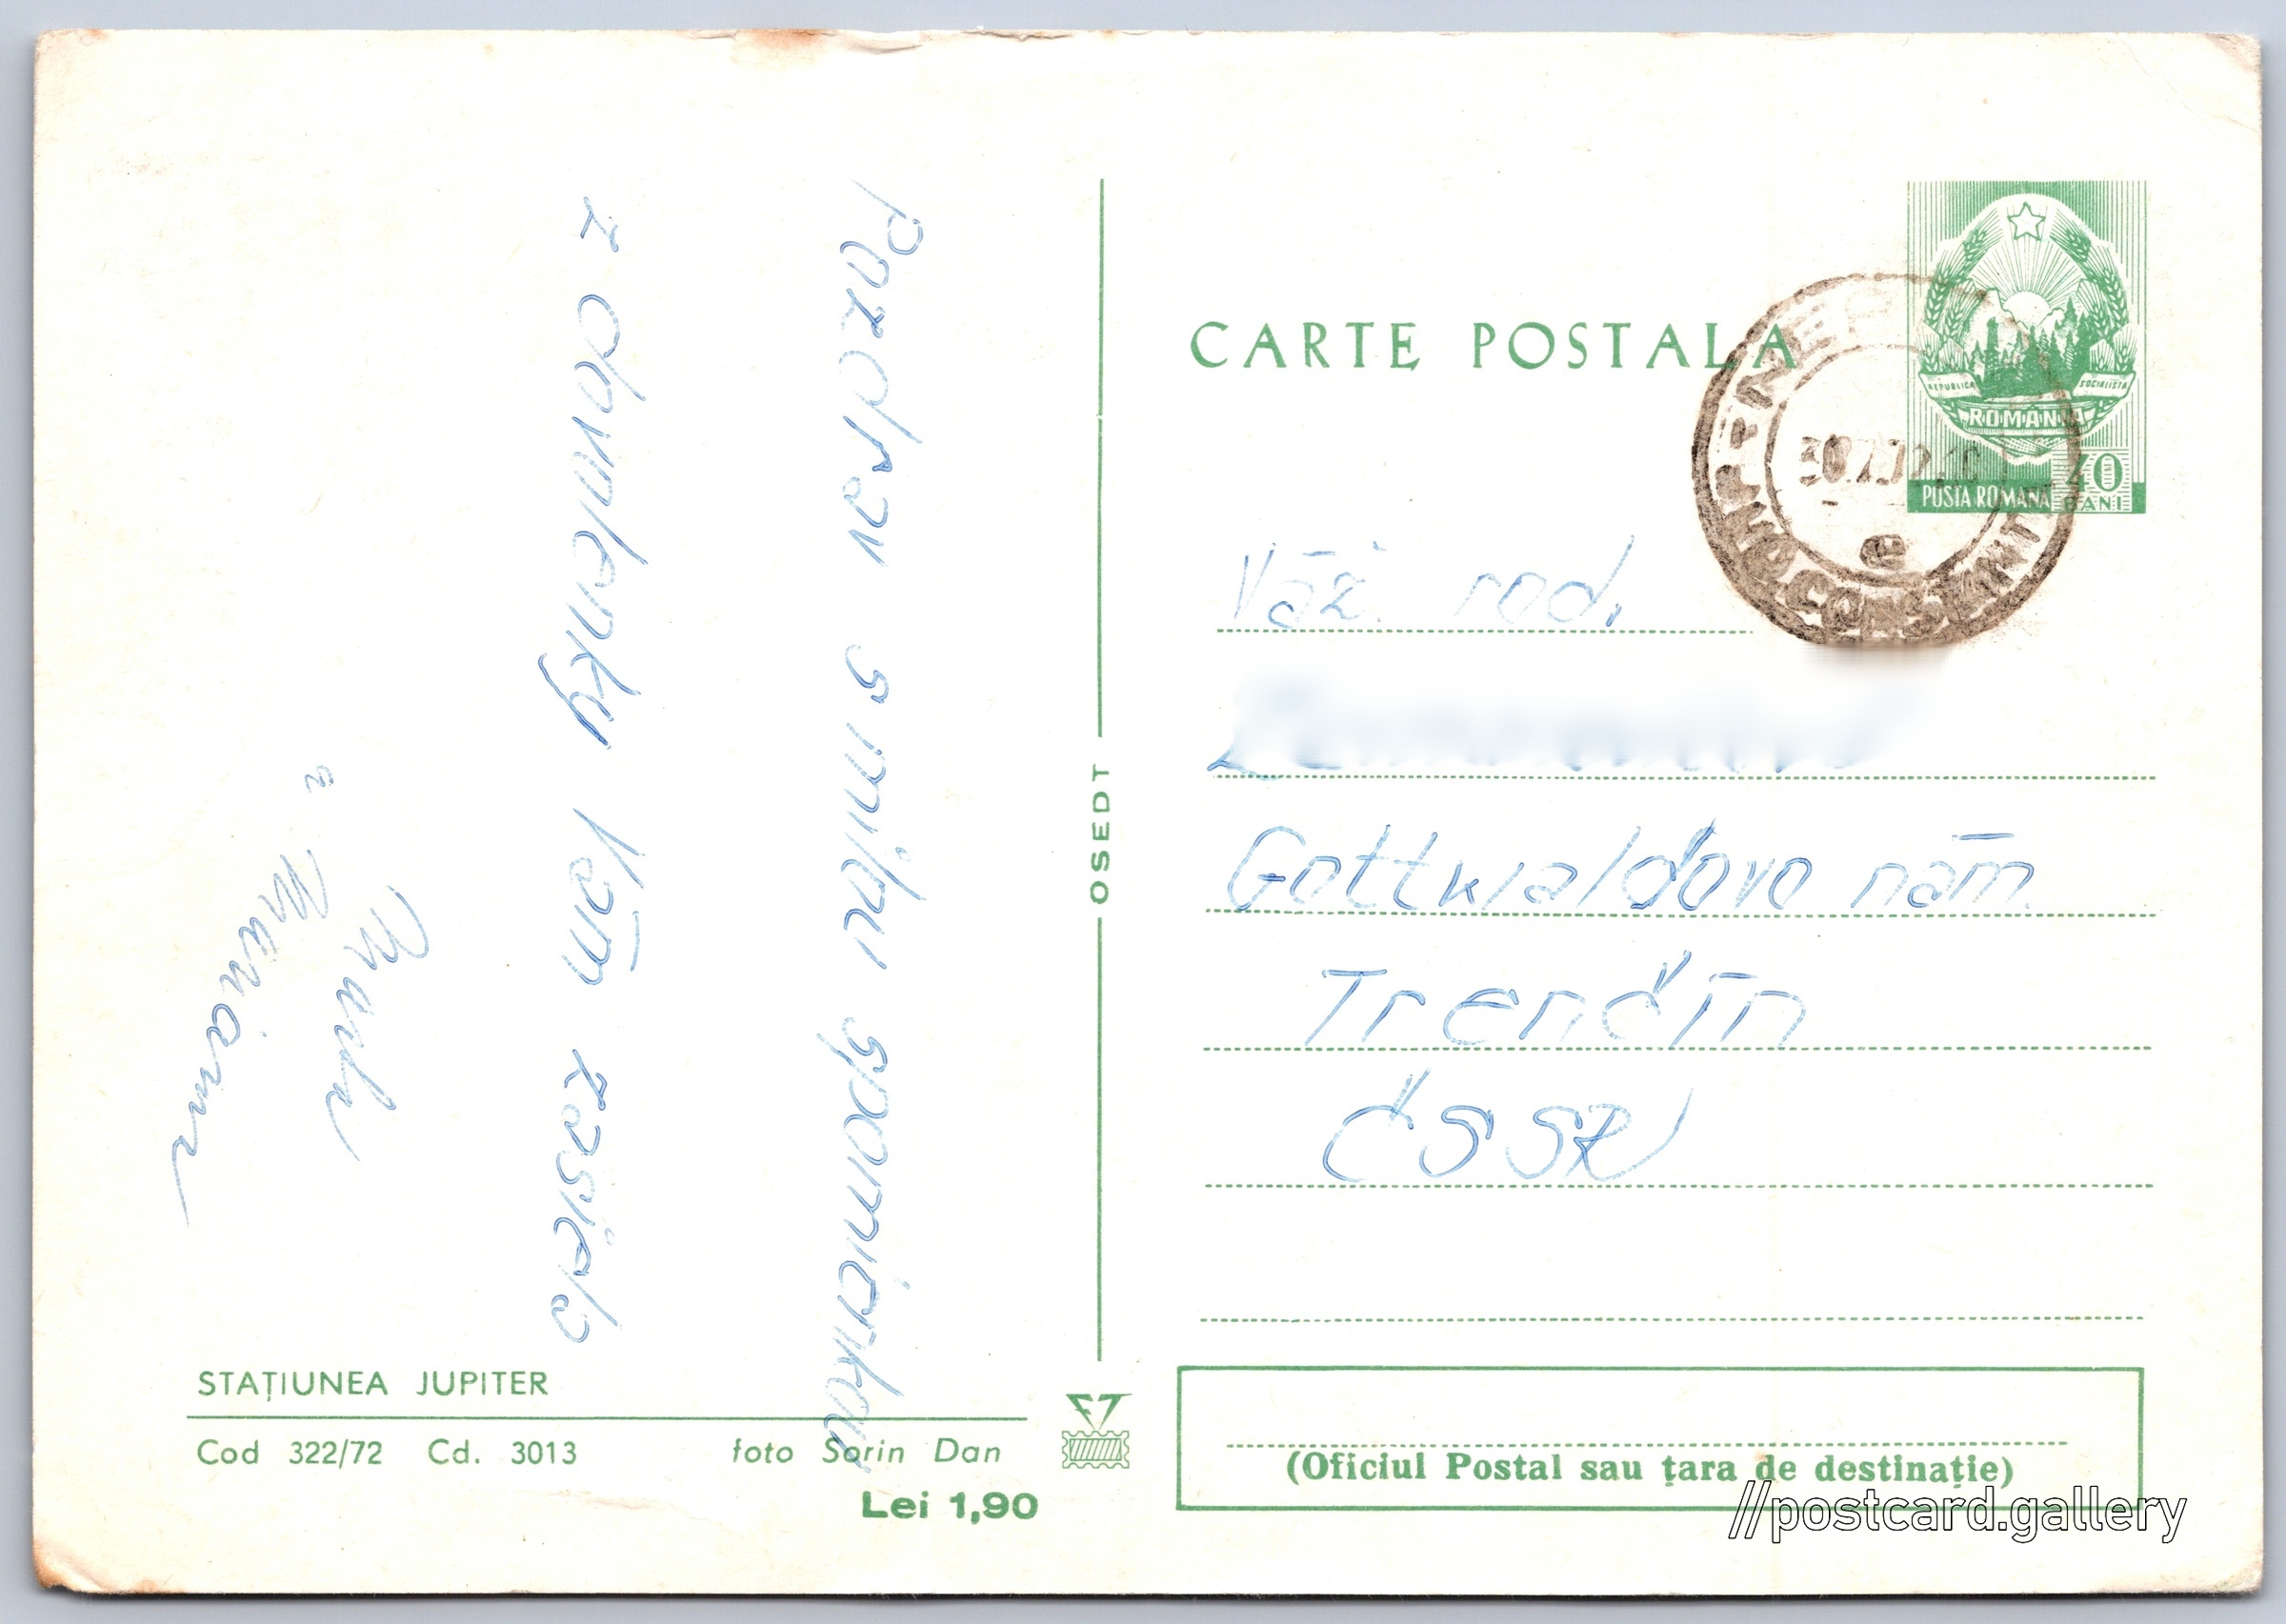 Pozdrav s milou spomienkou
z dovolenky Vám zasiela
a
Marian
CARTE POSTALA
REPUBLICA
SOCIALISTA
ROMANIA
POSTA ROMANA
40
BANI
CONSTANTA
Váž. rod.
Gottwaldovo nám.
Trenčín
ČSSR
OSEDT
STAȚIUNEA JUPITER
Cod 322/72 Cd. 3013
foto Sorin Dan
Lei 1,90
(Oficiul Postal sau țara de destinație)
//postcard.gallery